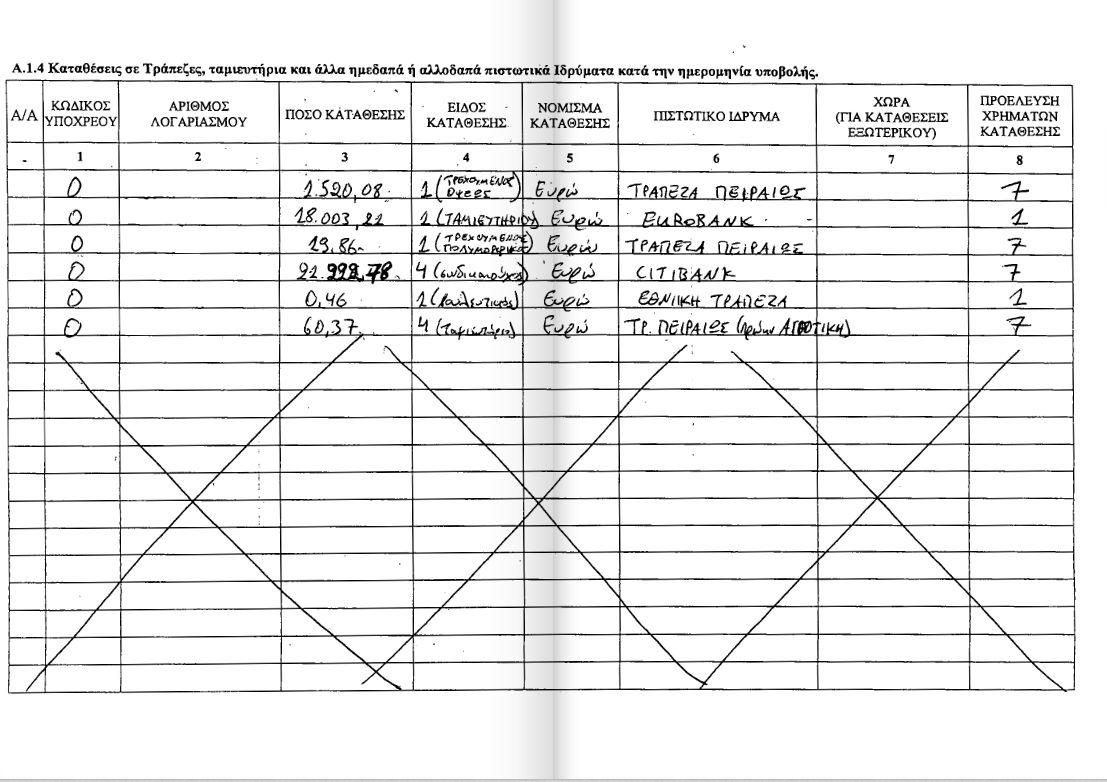 Α.1.4 Καταθέσεις σε Τράπεζες, ταμιευτήρια και άλλα ημεδαπά ή αλλοδαπά πιστωτικά Ιδρύματα κατά την ημερομηνία υποβολής.
Α/Α ΚΩΔΙΚΟΣ ΥΠΟΧΡΕΟΥ ΑΡΙΘΜΟΣ ΛΟΓΑΡΙΑΣΜΟΥ ΠΟΣΟ ΚΑΤΑΘΕΣΗΣ ΕΙΔΟΣ ΚΑΤΑΘΕΣΗΣ ΝΟΜΙΣΜΑ ΚΑΤΑΘΕΣΗΣ ΠΙΣΤΩΤΙΚΟ ΙΔΡΥΜΑ ΧΩΡΑ (ΓΙΑ ΚΑΤΑΘΕΣΕΙΣ ΕΞΩΤΕΡΙΚΟΥ) ΠΡΟΕΛΕΥΣΗ ΧΡΗΜΑΤΩΝ ΚΑΤΑΘΕΣΗΣ
- 1 2 3 4 5 6 7 8
0 1.520,08 1 (ΤΡΕΧΟΥΜΕΝΟΣ Όψεως) Ευρώ ΤΡΑΠΕΖΑ ΠΕΙΡΑΙΩΣ 7
0 18.003,21 1 (ΤΑΜΙΕΥΤΗΡΙΟΥ) Ευρώ EUROBANK 1
0 13,86 1 (ΤΡΕΧΟΥΜΕΝΟΣ) Ευρώ ΤΡΑΠΕΖΑ ΠΕΙΡΑΙΩΣ 7
0 4 (συνδικαιούχος) Ευρώ CITIBANK 7
0 0,46 1 (Βουλευτικός) Ευρώ ΕΘΝΙΚΗ ΤΡΑΠΕΖΑ 1
0 60,37 4 (Ταμιευτήριο) Ευρώ ΤΡ. ΠΕΙΡΑΙΩΣ (πρώην ΑΓΡΟΤΙΚΗ) 7